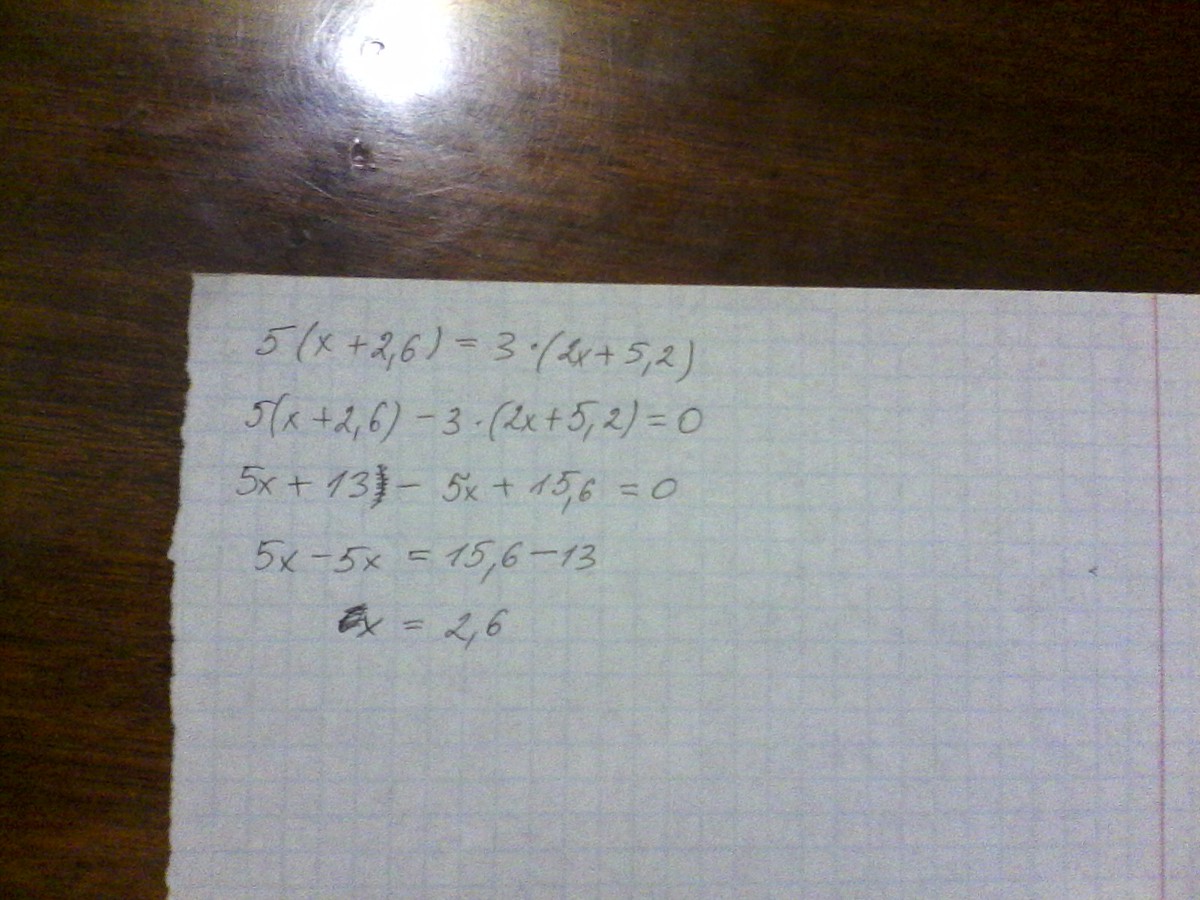 5(x+2,6) = 3·(2x+5,2)
5(x+2,6) - 3·(2x+5,2) = 0
5x + 13 - 5x + 15,6 = 0
5x - 5x = 15,6 - 13
x = 2,6